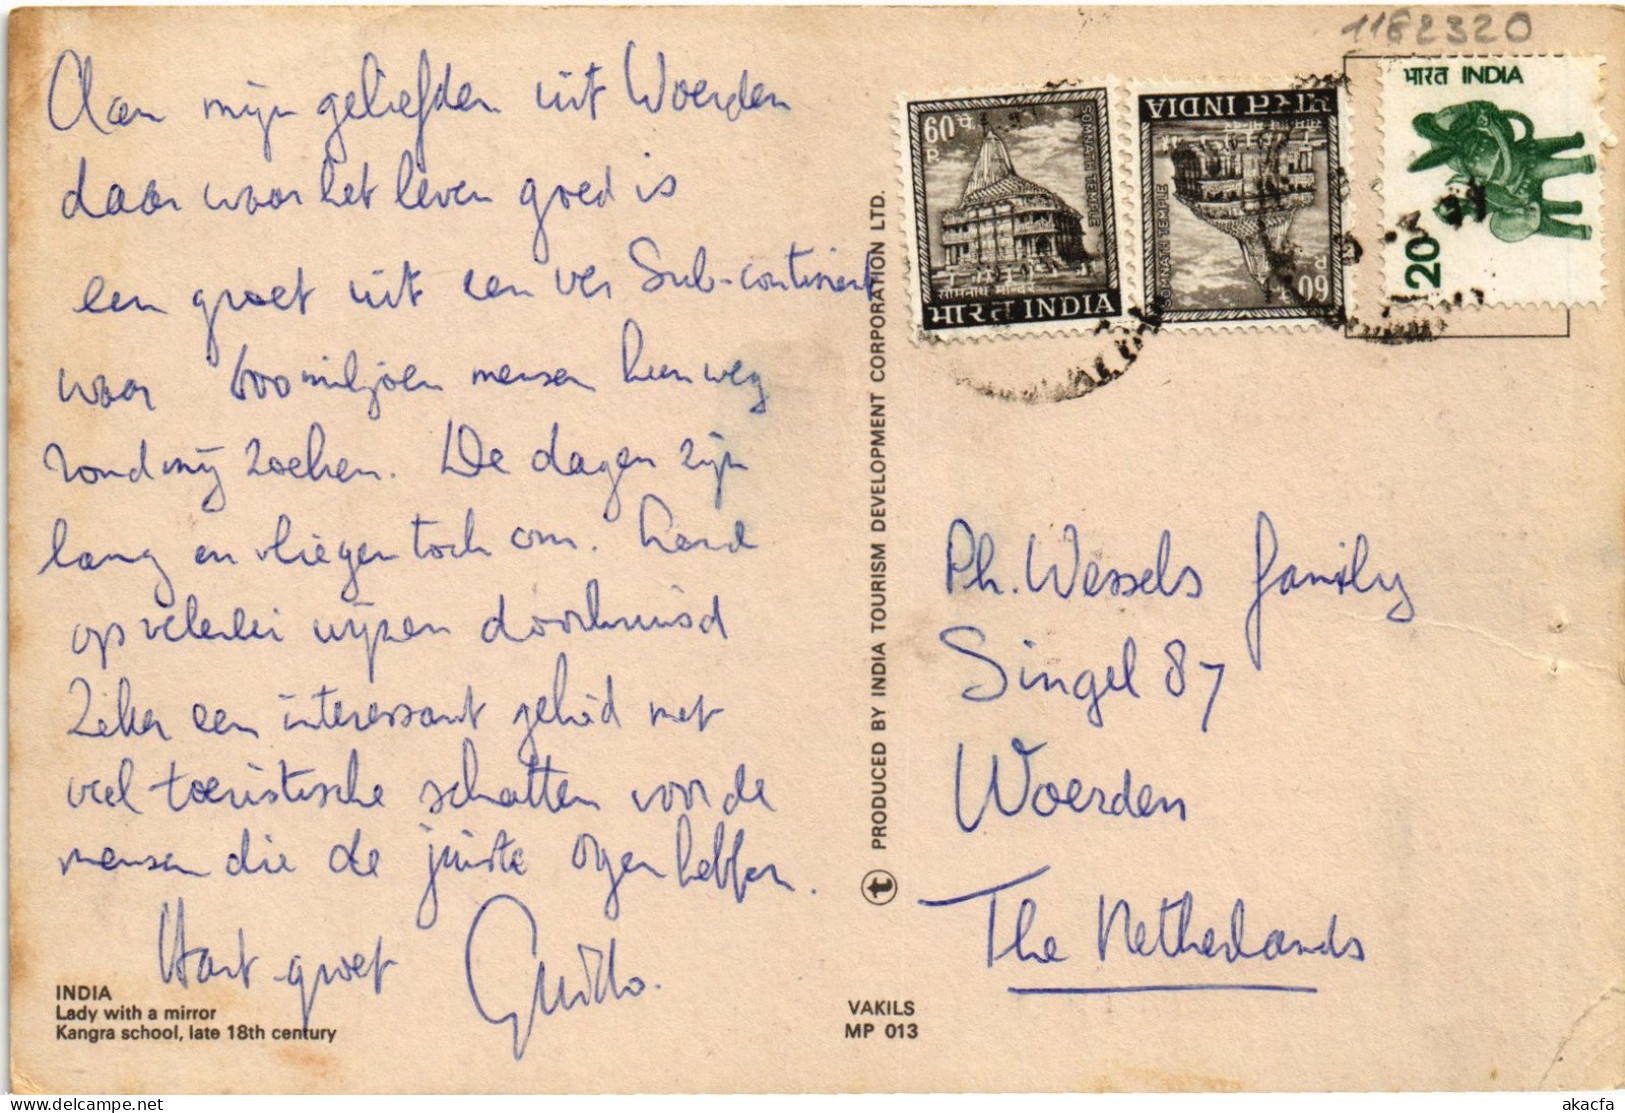 1182320
Aan mijn geliefden uit Woerden
daar waar het leven goed is
een groet uit een ver Sub-continent
waar 600 miljoen mensen hun weg
rond mij zoeken. De dagen zijn
lang en vliegen toch om. Land
op velerlei wijzen doorkruisd
Zeker een interessant gebied met
veel toeristische schatten voor de
mensen die de juiste ogen hebben.
Hart. groet Guido.
INDIA
Lady with a mirror
Kangra school, late 18th century
PRODUCED BY INDIA TOURISM DEVELOPMENT CORPORATION LTD.
VAKILS
MP 013
60 P
SOMNATH TEMPLE
सोमनाथ मन्दिर
भारत INDIA
60 P
SOMNATH TEMPLE
सोमनाथ मन्दिर
भारत INDIA
भारत INDIA
20
Ph. Wessels family
Singel 87
Woerden
The Netherlands
akacfa